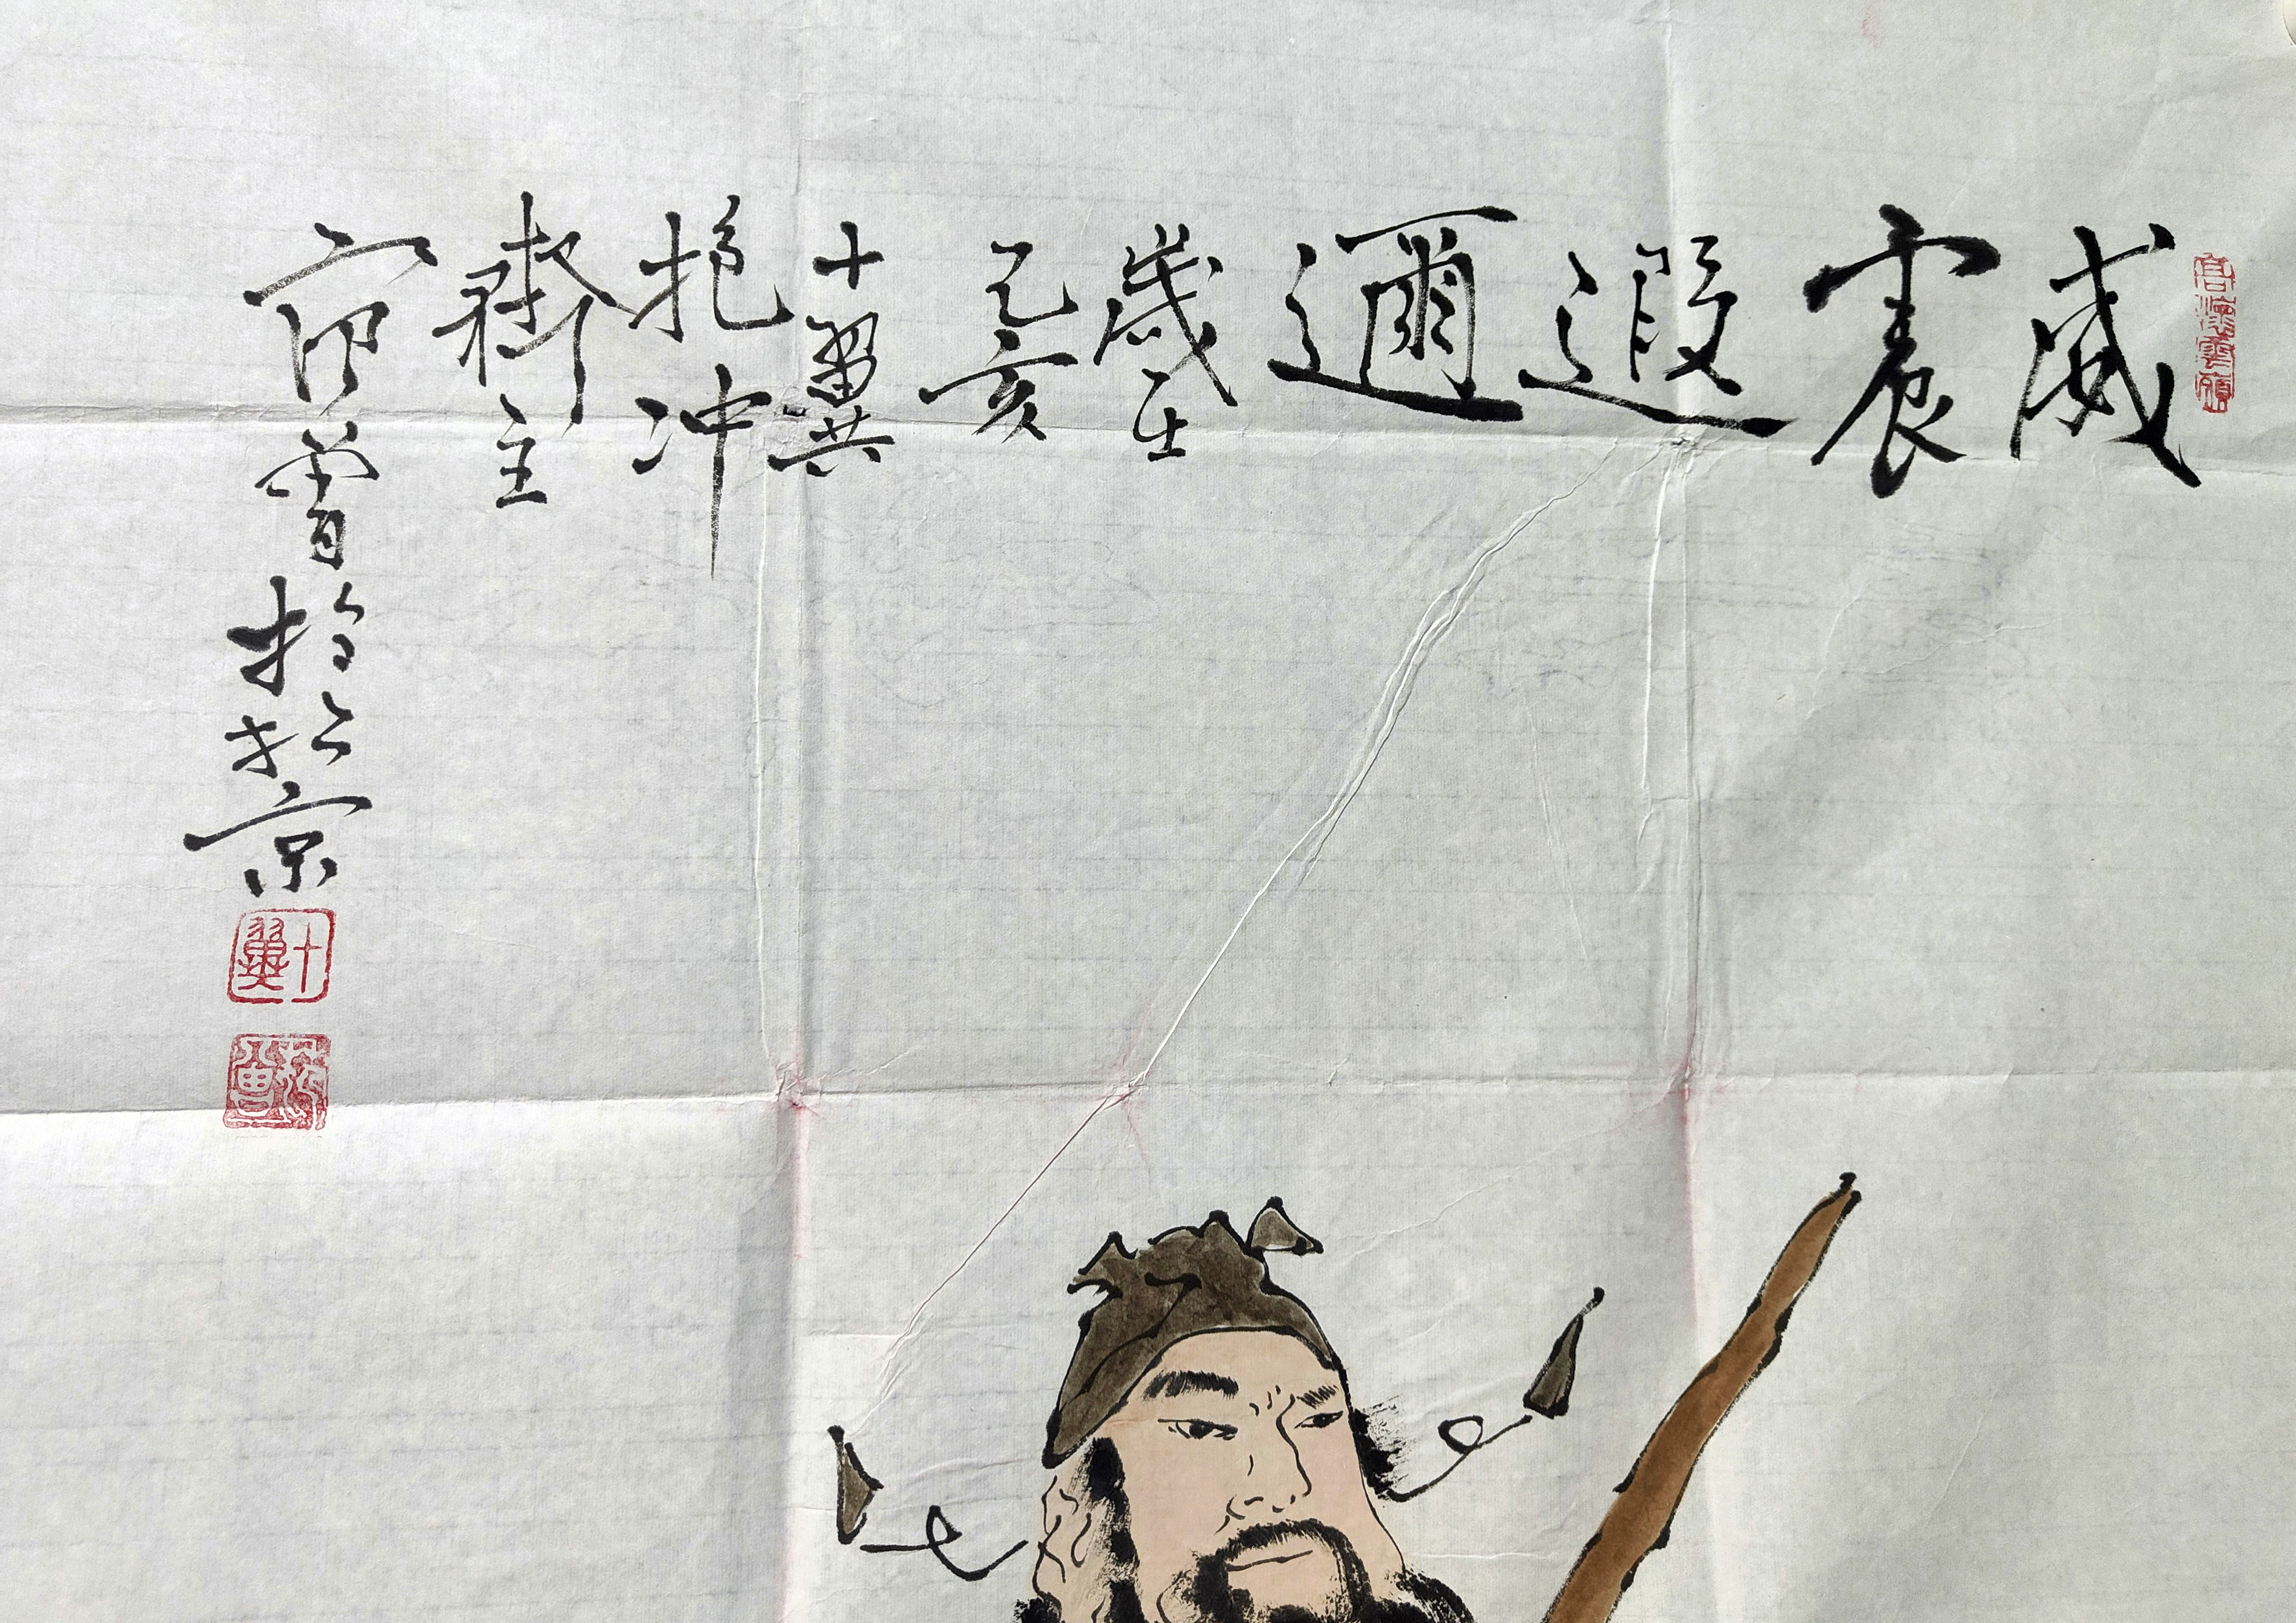 威震
遐
邇
歲在
乙亥
十翼
抱冲
齋主
范曾於
北京
十翼
范曾